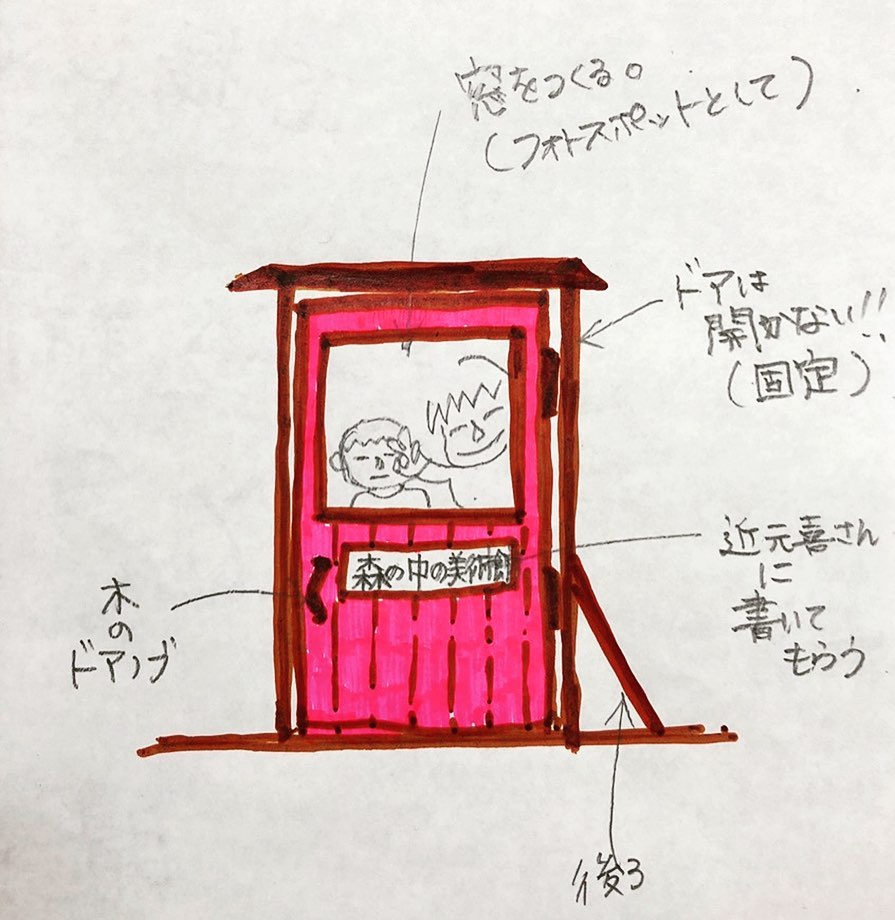 窓をつくる。
(フォトスポットとして)
ドアは
開かない!!
(固定)
森の中の美術館
近元喜さん
に
書いて
もらう
木
の
ドアノブ
後ろ